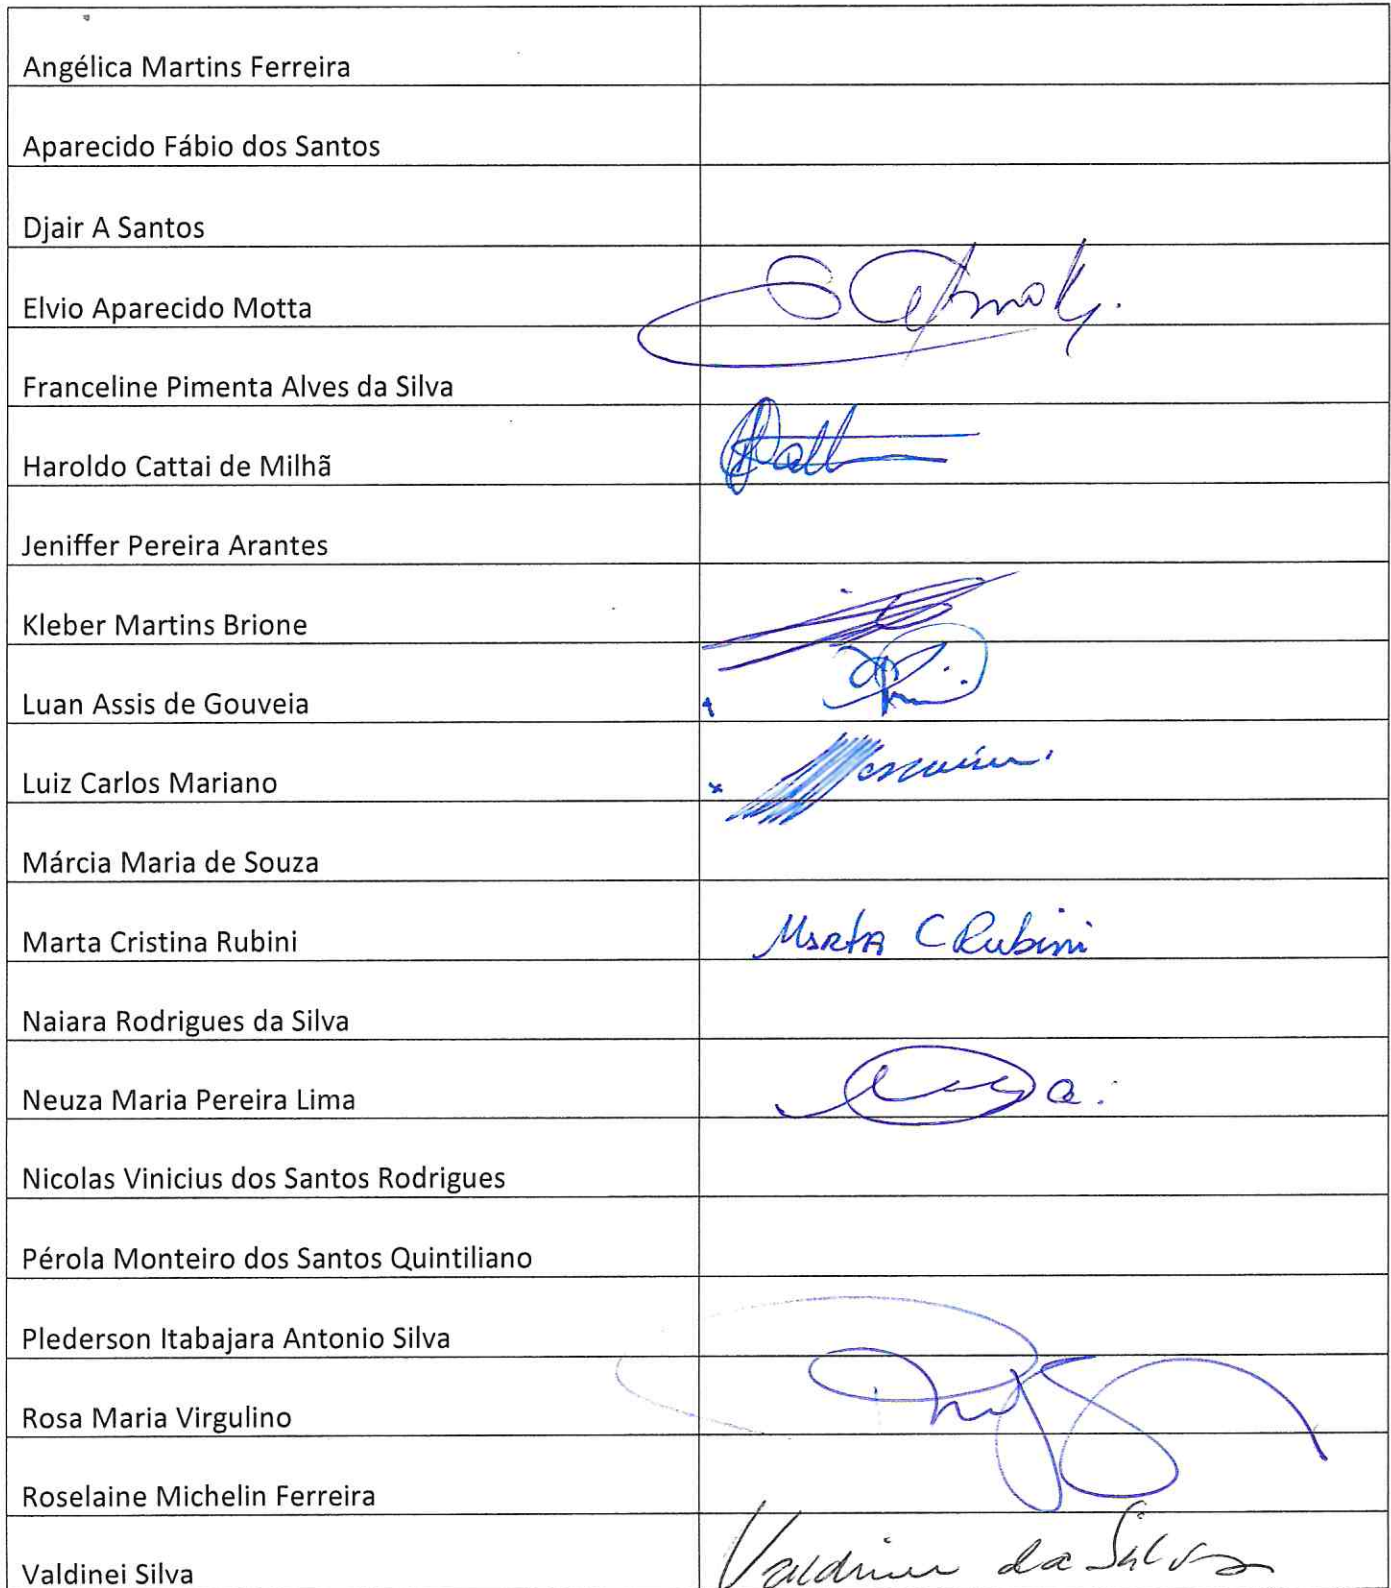 Angélica Martins Ferreira
Aparecido Fábio dos Santos
Djair A Santos
Elvio Aparecido Motta
Franceline Pimenta Alves da Silva
Haroldo Cattai de Milhã
Jeniffer Pereira Arantes
Kleber Martins Brione
Luan Assis de Gouveia
Luiz Carlos Mariano
Márcia Maria de Souza
Marta Cristina Rubini Marta C Rubini
Naiara Rodrigues da Silva
Neuza Maria Pereira Lima
Nicolas Vinicius dos Santos Rodrigues
Pérola Monteiro dos Santos Quintiliano
Plederson Itabajara Antonio Silva
Rosa Maria Virgulino
Roselaine Michelin Ferreira
Valdinei Silva Valdinei da Silva